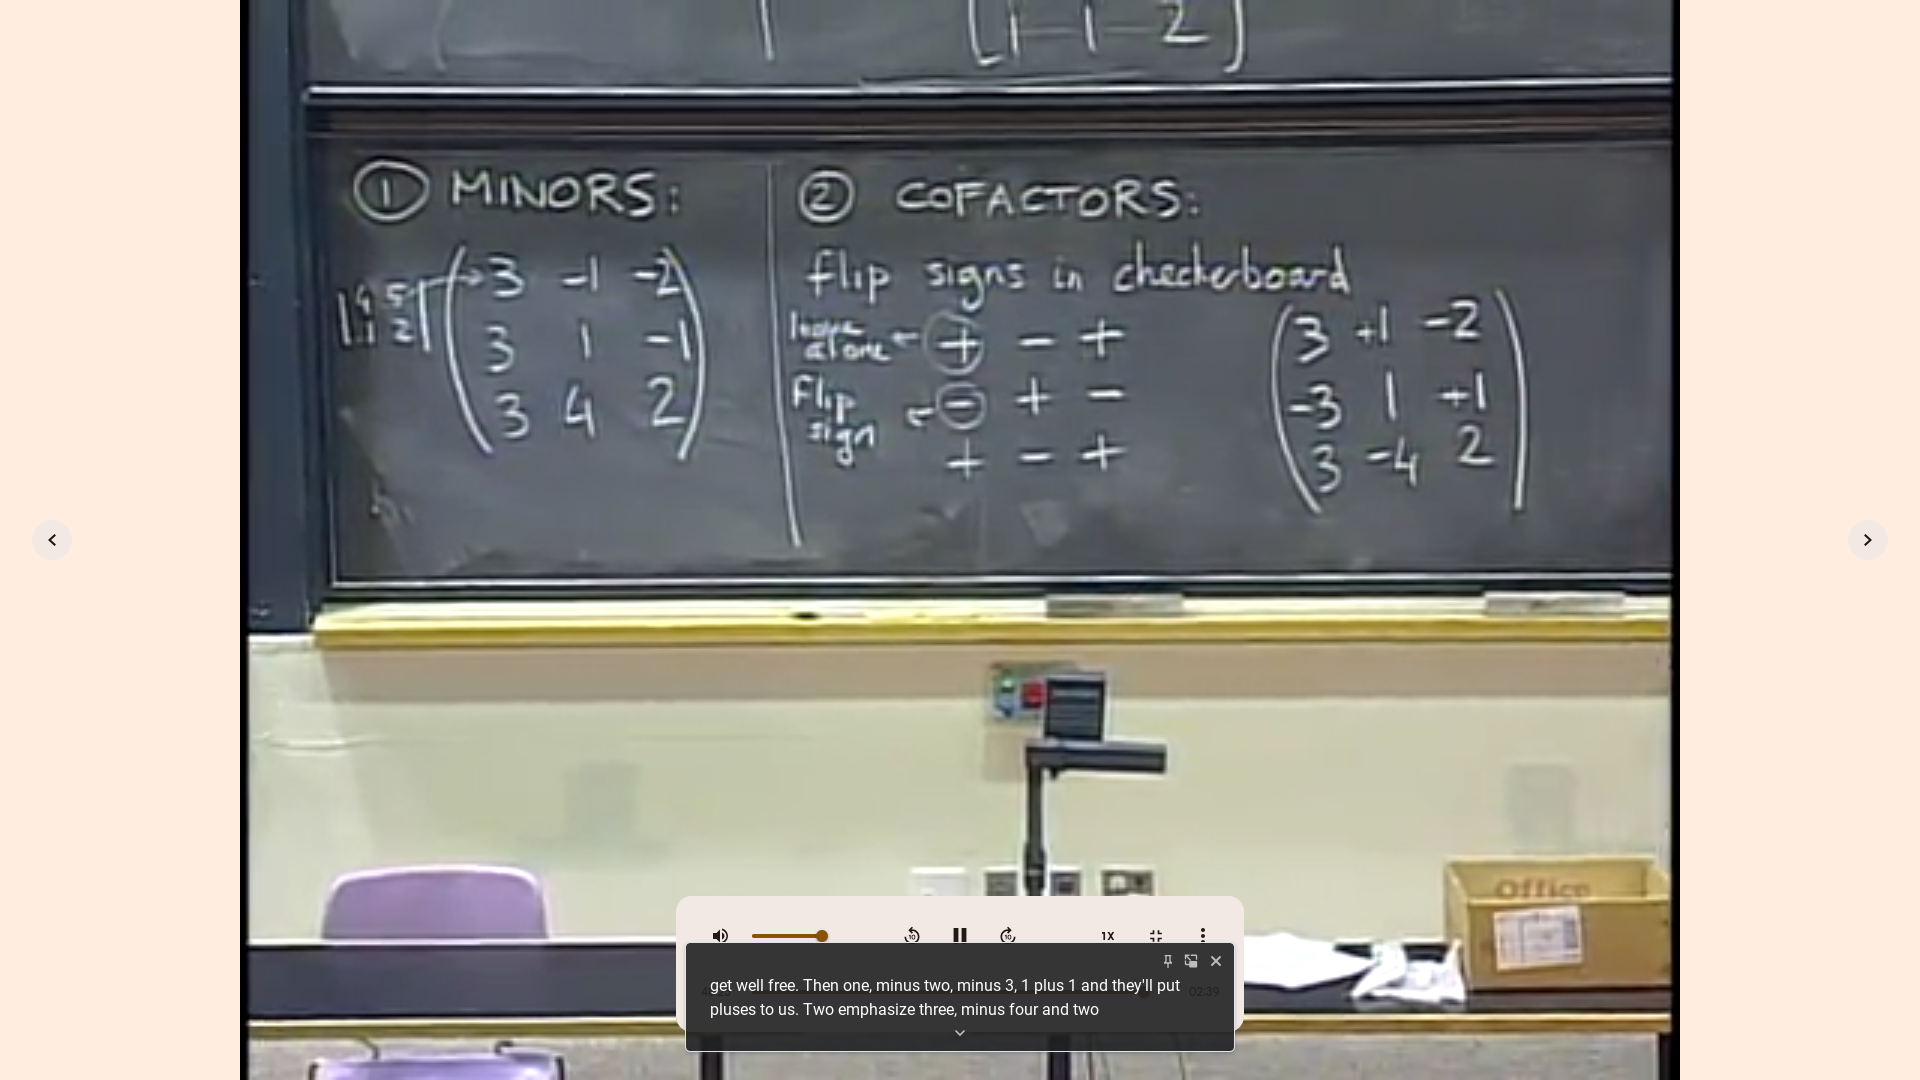 1 -1 -2
① MINORS:
|4 5|
|1 2|
3 -1 -2
3 1 -1
3 4 2
② COFACTORS:
flip signs in checkerboard
leave alone ← + - +
flip sign ← - + -
+ - +
3 +1 -2
-3 1 +1
3 -4 2
Office
10
10
1X
02:39
get well free. Then one, minus two, minus 3, 1 plus 1 and they'll put
pluses to us. Two emphasize three, minus four and two